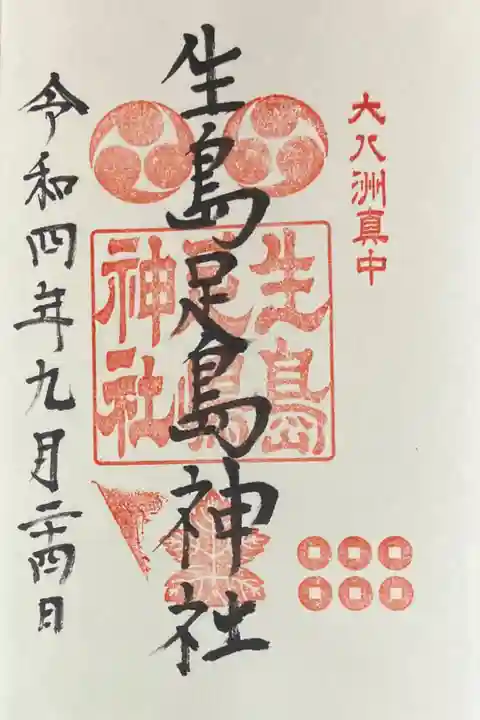 大八洲真中
生島足島神社
生島
足島
神社
令和四年九月二十四日